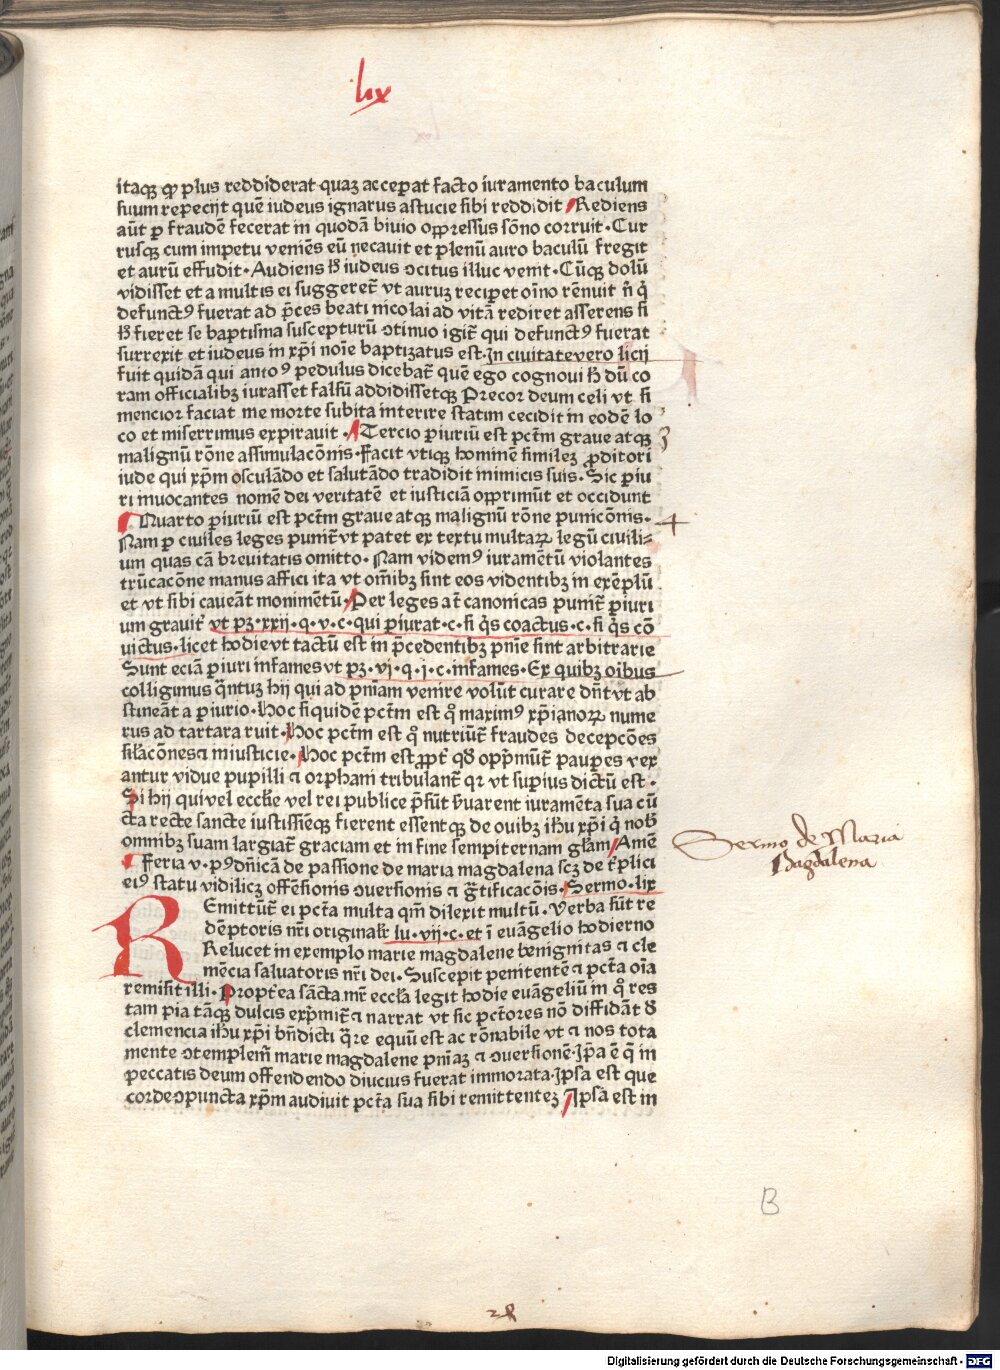 lix
itaqꝫ ꝙ plus reddiderat quaꝫ acceperat facto iuramento baculum
suum repecijt quē iudeus ignarus astucie sibi reddidit Rediens
aūt ꝑ fraudē fecerat in quodā biuio oppressus sōno corruit · Cur
rusqꝫ cum impetu veniēs eū necauit et plenū auro baculū fregit
et aurū effudit · Audiens ħ iudeus ꝯcitus illuc venit · Cūqꝫ dolū
vidisset et a multis ei suggeret̄ vt auruꝫ reciꝑet oīno rēnuit n̄ q̄
defunctꝰ fuerat ad p̄ces beati nicolai ad vitā rediret asserens si
ħ fieret se baptisma suscepturū ꝯtinuo igit̄ qui defunctꝰ fuerat
surrexit et iudeus in xp̄i noīe baptizatus est · In ciuitate vero licij
fuit quidā qui anto ꝰ pedulus dicebat̄ quē ego cognoui ħ dū co
ram officialibꝫ iurasset falsū addidissetqꝫ Precor deum celi vt si
mencior faciat me morte subita interire statim cecidit in eodē lo
co et miserrimus expirauit · Tercio ꝑiuriū est pctm̄ graue atqꝫ
3
malignū rōne assimulacōnis · Facit vtiqꝫ hominē simileꝫ ꝓditori
iude qui xp̄m osculādo et salutādo tradidit inimicis suis · Sic ꝑiu
ri inuocantes nomē dei veritatē et iusticiā opprimūt et occidunt
Quarto ꝑiuriū est pctm̄ graue atqꝫ malignū rōne punicōnis ·
4
Nam ꝑ ciuiles leges punit̄ vt patet ex textu multaꝝ legū ciuili⸗
um quas cā breuitatis omitto · Nam videmꝰ iuramētū violantes
trūcacōne manus affici ita vt om̄ibꝫ sint eos videntibꝫ in exēplū
et vt sibi caueāt monimētū Per leges at̄ canonicas punit̄ ꝑiuri
um grauit̄ vt pꝫ · xxij · q · v · c · qui ꝑiurat · c · si q̄s coactus · c · si q̄s cō
uictus · licet hodie vt tactū est in p̄cedentibꝫ pn̄ie sint arbitrarie
Sunt eciā ꝑiuri infames vt pꝫ · vj · q · j · c · infames · Ex quibꝫ oībus
colligimus q̄ntuꝫ hij qui ad pn̄iam venire volūt curare dn̄t vt ab
stineāt a ꝑiurio · Hoc siquidē pctm̄ est qͦ maximꝰ xp̄ianoꝝ nume
rus ad tartara ruit · Hoc pctm̄ est qͦ nutriūt̄ fraudes decepcōes
sil̄acōnes ⁊ iniusticie · Hoc pctm̄ est ꝓpt̄ qd̄ opp̄mūt̄ pauꝑes vex
antur vidue pupilli ⁊ orphani tribulant̄ qr vt suꝑius dictū est ·
Si hij qui vel eccl̄ie vel rei publice p̄sūt s̄uarent iuramēta sua cū
cta recte sancte iustissīeqꝫ fierent essentqꝫ de ouibꝫ ih̄u xp̄i q̄ nob̄
omnibꝫ suam largiat̄ graciam et in fine sempiternam gl̄am Amē
Sermo de Maria
Magdalena
Feria v · pꝰ dn̄icā de passione de maria magdalena scꝫ de t̄plici
eiꝰ statu vidilicꝫ offēsionis ꝯuersionis ⁊ gͣtificacōis · Sermo · lix
REmittūt̄ ei pctā multa qm̄ dilexit multū · Verba sūt re
dēptoris nr̄i originalr̄ lu · vij · c · et ī euāgelio hodierno
Relucet in exemplo marie magdalene benignitas ⁊ cle
mēcia saluatoris nr̄i dei · Suscepit penitentē ⁊ pctā oīa
remisit illi · Propt̄ea sācta mr̄ eccl̄ia legit hodie euāgeliū in qͦ res
tam pia tāqꝫ dulcis exp̄mit̄ ⁊ narrat vt sic pctōres nō diffidāt d̄
clemencia ih̄u xp̄i bn̄dicti q̄re equū est ac rōnabile vt ⁊ nos tota
mente ꝯtemplem̄ marie magdalene pn̄iaꝫ ⁊ ꝯuersionē · Ip̄a ē q̄ in
peccatis deum offendendo diucius fuerat immorata · Ipsa est que
corde ꝯpuncta xp̄m audiuit pctā sua sibi remittenteꝫ Ipsa est in
B
28
Digitalisierung gefördert durch die Deutsche Forschungsgemeinschaft · DFG